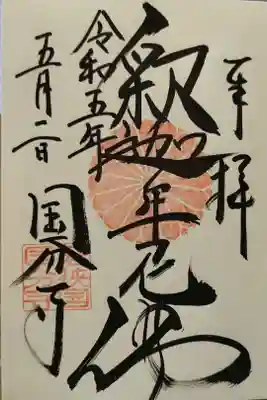 奉拝
釈迦牟尼仏
令和五年
五月二日
国分寺